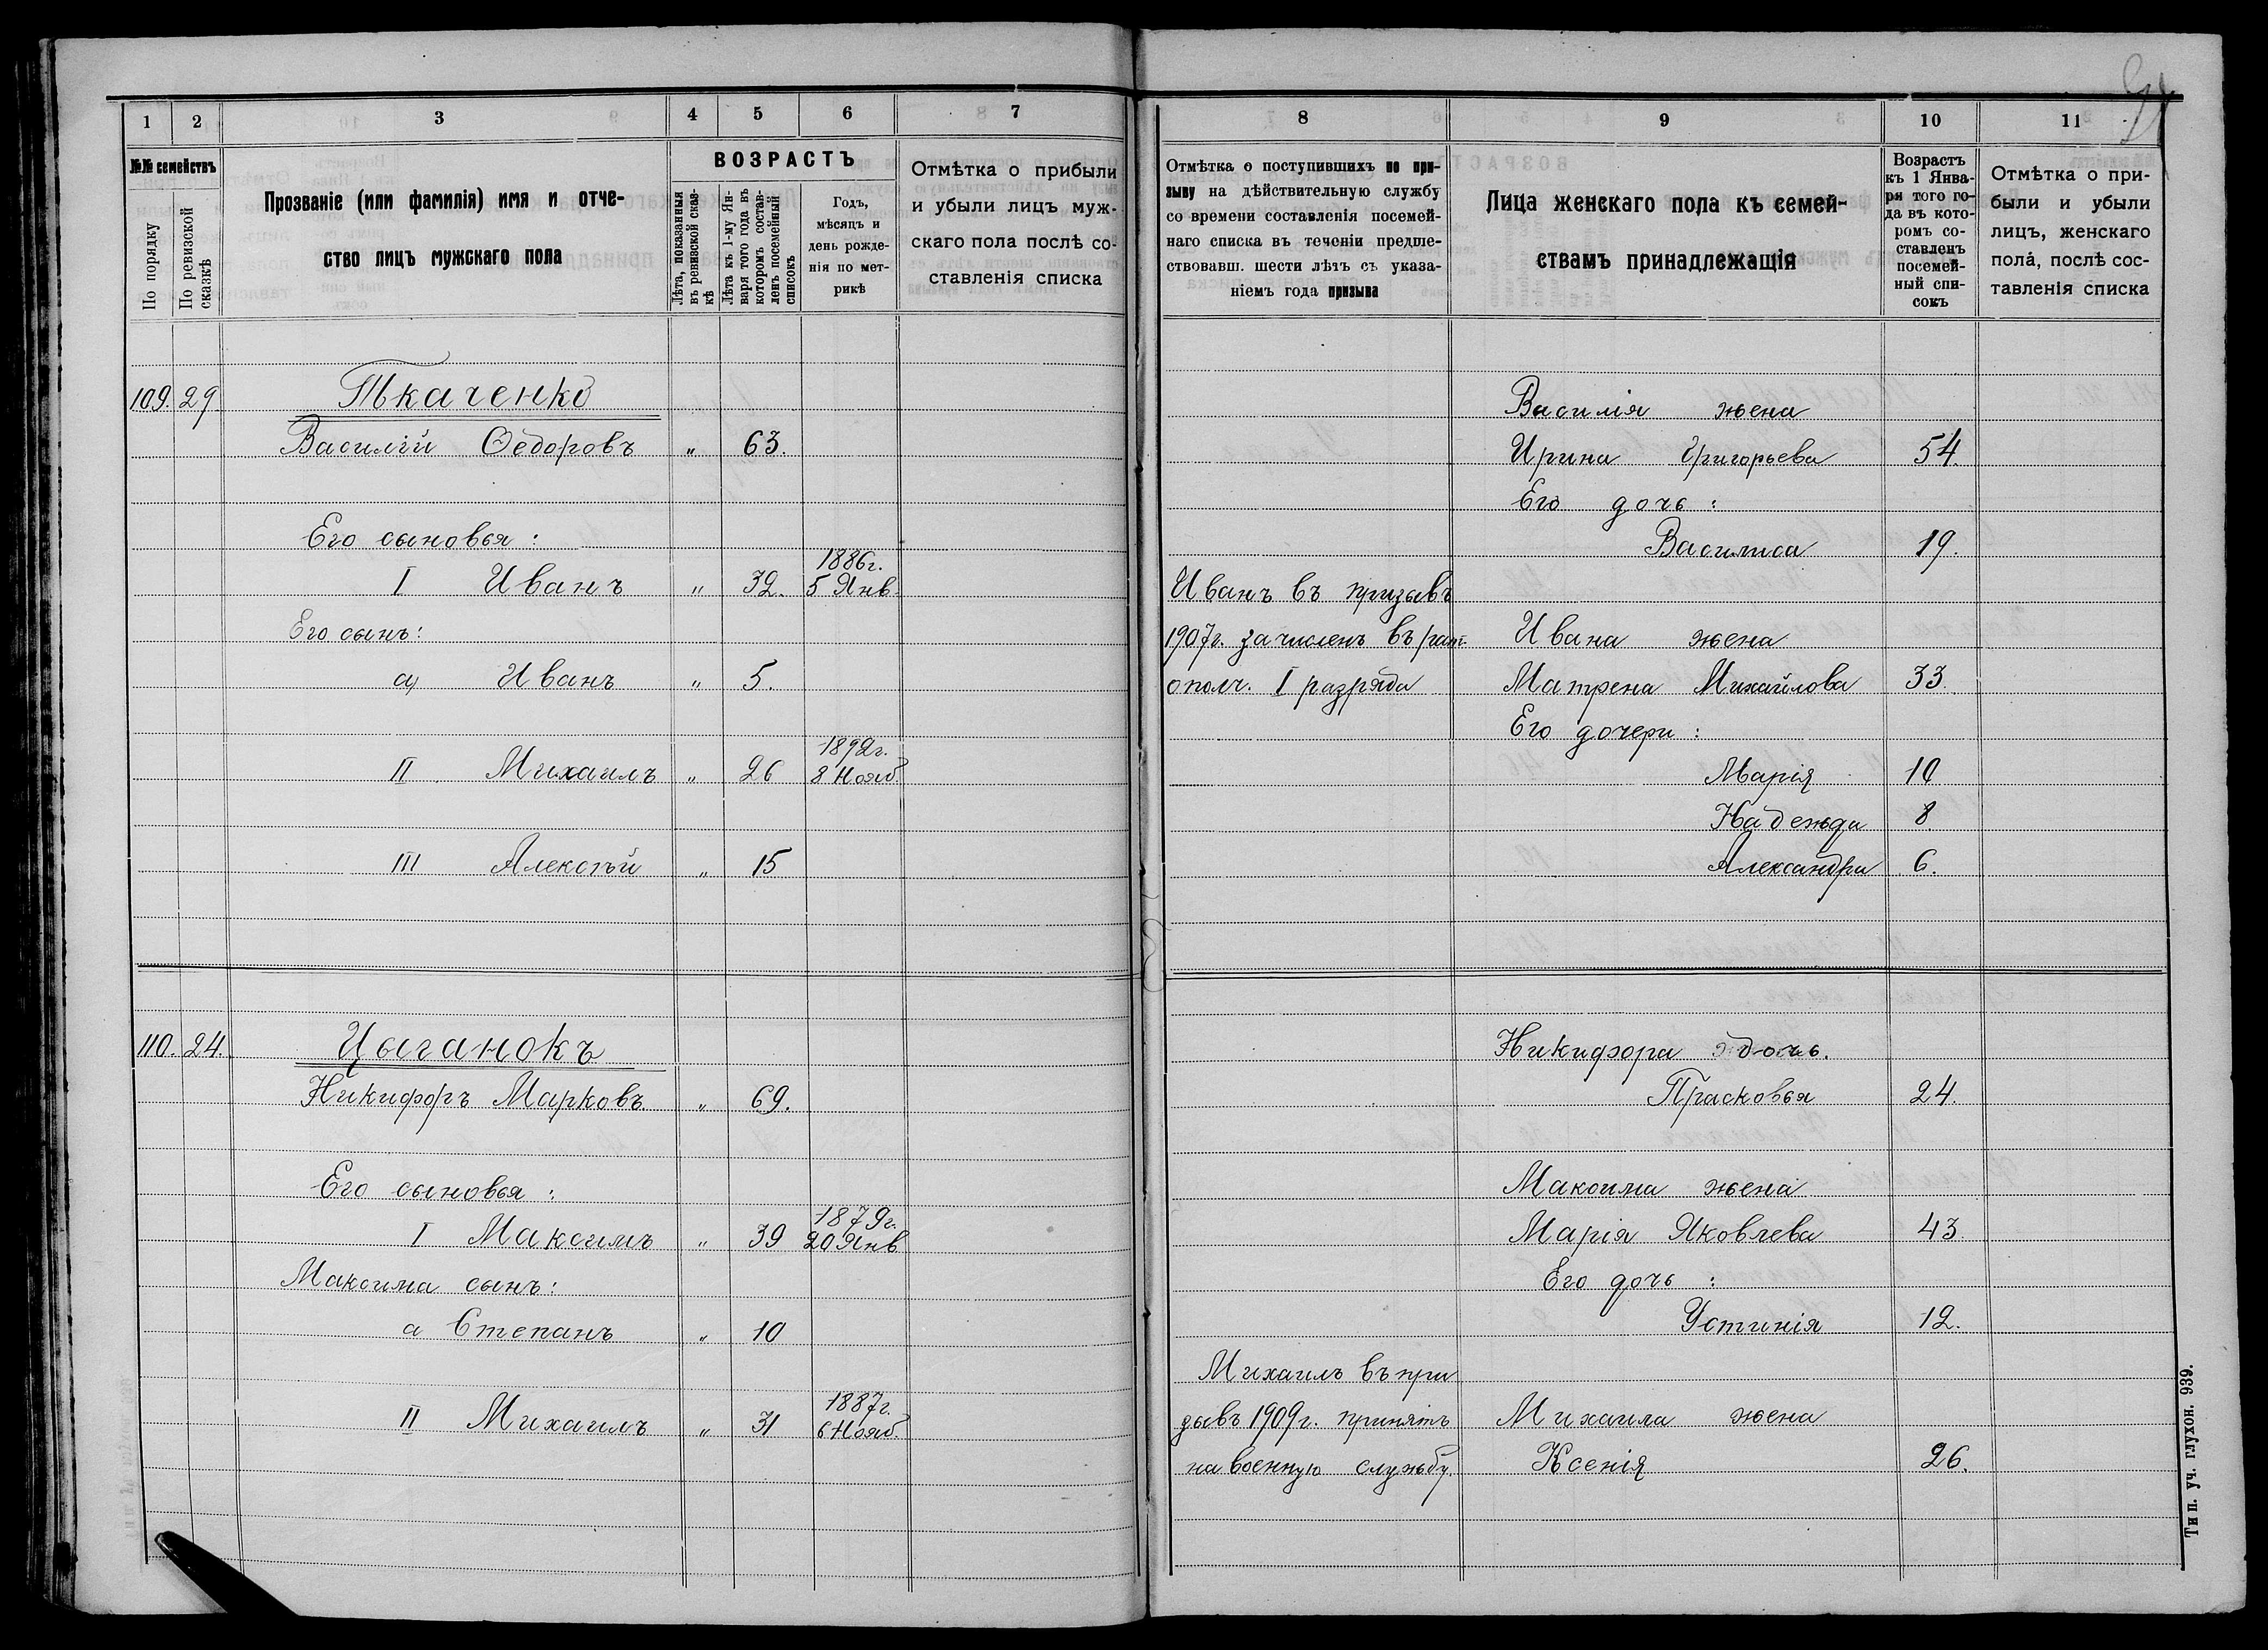 1 2 3 4 5 6 7
№№ семействъ
По порядку
По ревизской сказкѣ
Прозваніе (или фамилія) имя и отче-
ство лицъ мужскаго пола
ВОЗРАСТЪ
Лѣта, показанныя въ ревизской сказ-кѣ
Лѣта къ 1-му Ян-варя того года въ которомъ состав-ленъ посемейный списокъ
Годъ,
мѣсяцъ и
день рожде-
нія по мет-
рикѣ
Отмѣтка о прибыли
и убыли лицъ муж-
скаго пола послѣ со-
ставленія списка
109. 29. Ткаченко
Василій Ѳедоровъ „ 63.
Его сыновья:
1886г.
I Иванъ „ 32. 5 Янв.
Его сынъ:
а) Иванъ „ 5.
1892г.
II Михаилъ „ 26 8 Нояб.
III Алексѣй „ 15
110. 24. Цыганокъ
Никифоръ Марковъ „ 69.
Его сыновья:
1879г.
I Максимъ „ 39 20 Янв
Максима сынъ:
а Степанъ „ 10
1887г.
II Михаилъ „ 31 6 Нояб.
8 9 10 11
Отмѣтка о поступившихъ по при-
зыву на дѣйствительную службу
со времени составленія посемей-
наго списка въ теченіи предше-
ствовавш. шести лѣтъ съ указа-
ніемъ года призыва
Лица женскаго пола къ семей-
ствамъ принадлежащія
Возрастъ
къ 1 Янва-
ря того го-
да въ кото-
ромъ со-
ставленъ
посемей-
ный спи-
сокъ
Отмѣтка о при-
были и убыли
лицъ, женскаго
пола, послѣ сос-
тавленія списка
Василія жена
Ирина Григорьева 54.
Его дочь:
Василиса 19.
Иванъ въ призывъ
1907г. зачисленъ въ рат. Ивана жена
ополч. I разряда Матрена Михайлова 33.
Его дочери:
Марія 10
Надежда 8
Александра 6.
Никифора дочь.
Прасковья 24.
Максима жена
Марія Яковлева 43.
Его дочь:
Устинія 12.
Михаилъ въ при
зывъ 1909г. принятъ Михаила жена
на военную службу. Ксенія 26.
Тип. уч. глухон. 939.